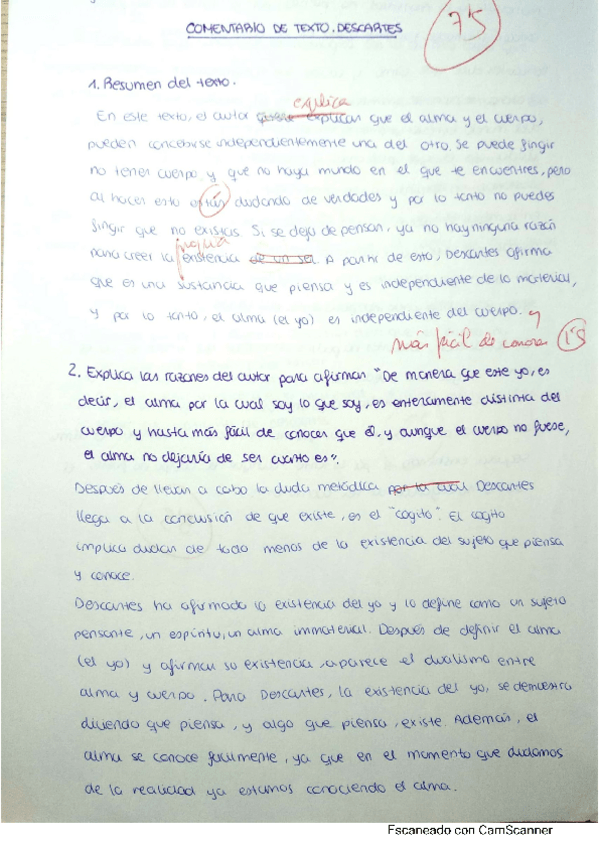 COMENTARIO DE TEXTO. DESCARTES
7'5
1. Resumen del texto.
explica
En este texto, el autor quiere explicar que el alma y el cuerpo,
pueden concebirse independientemente una del otro. Se puede fingir
no tener cuerpo y que no haya mundo en el que te encuentres, pero
al hacer esto estás dudando de verdades y por lo tanto no puedes
fingir que no existas. Si se deja de pensar, ya no hay ninguna razón
propia
para creer la existencia de un ser. A partir de esto, Descartes afirma
que es una sustancia que piensa y es independiente de lo material,
y por lo tanto, el alma (el yo) es independiente del cuerpo. y
más fácil de conocer 1'5
2. Explica las razones del autor para afirmar "De manera que este yo, es
decir, el alma por la cual soy lo que soy, es enteramente distinta del
cuerpo y hasta más fácil de conocer que él. y aunque el cuerpo no fuese,
el alma no dejaría de ser cuanto es".
Después de llevar a cabo la duda metódica por la cual Descartes
llega a la conclusión de que existe, es el "cogito". El cogito
implica dudar de todo menos de la existencia del sujeto que piensa
y conoce.
Descartes ha afirmado la existencia del yo y lo define como un sujeto
pensante, un espíritu, un alma inmaterial. Después de definir el alma
(el yo) y afirmar su existencia, aparece el dualismo entre
alma y cuerpo. Para Descartes, la existencia del yo, se demuestra
diciendo que piensa, y algo que piensa, existe. Además, el
alma se conoce fácilmente, ya que en el momento que dudamos
de la realidad ya estamos conociendo el alma.
Escaneado con CamScanner